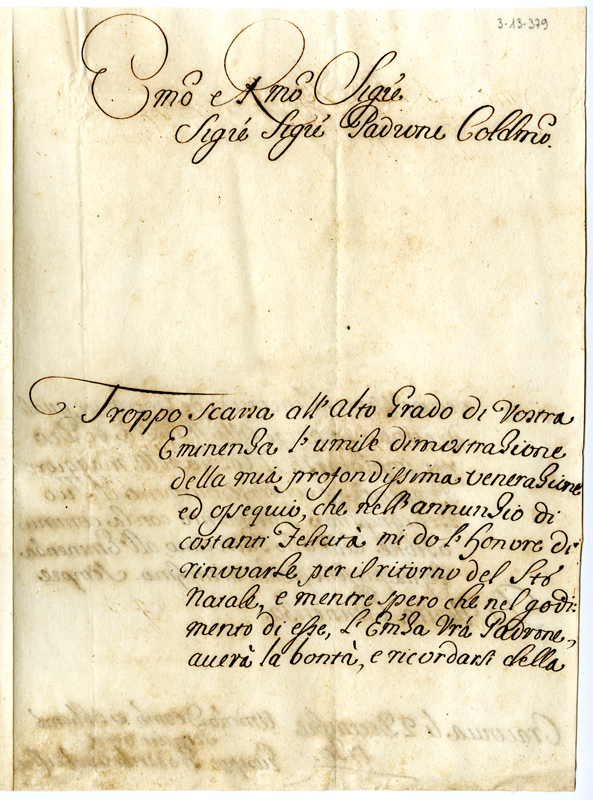 3-13-379
Emo e Rmo Sigre
Sigre Sigre Padrone Collmo.
Troppo scarsa all'alto Grado di Vostra
Eminenza l'umile dimostrazione
della mia profondissima venerazione
ed ossequio, che nell'annunzio di
costanti Felicità mi do l'honore di
rinovarle per il ritorno del Sto
Natale, e mentre spero che nel godi:
mento di esse, l'Emza Vrá Padrone,
auerà la bontà, e ricordarsi della